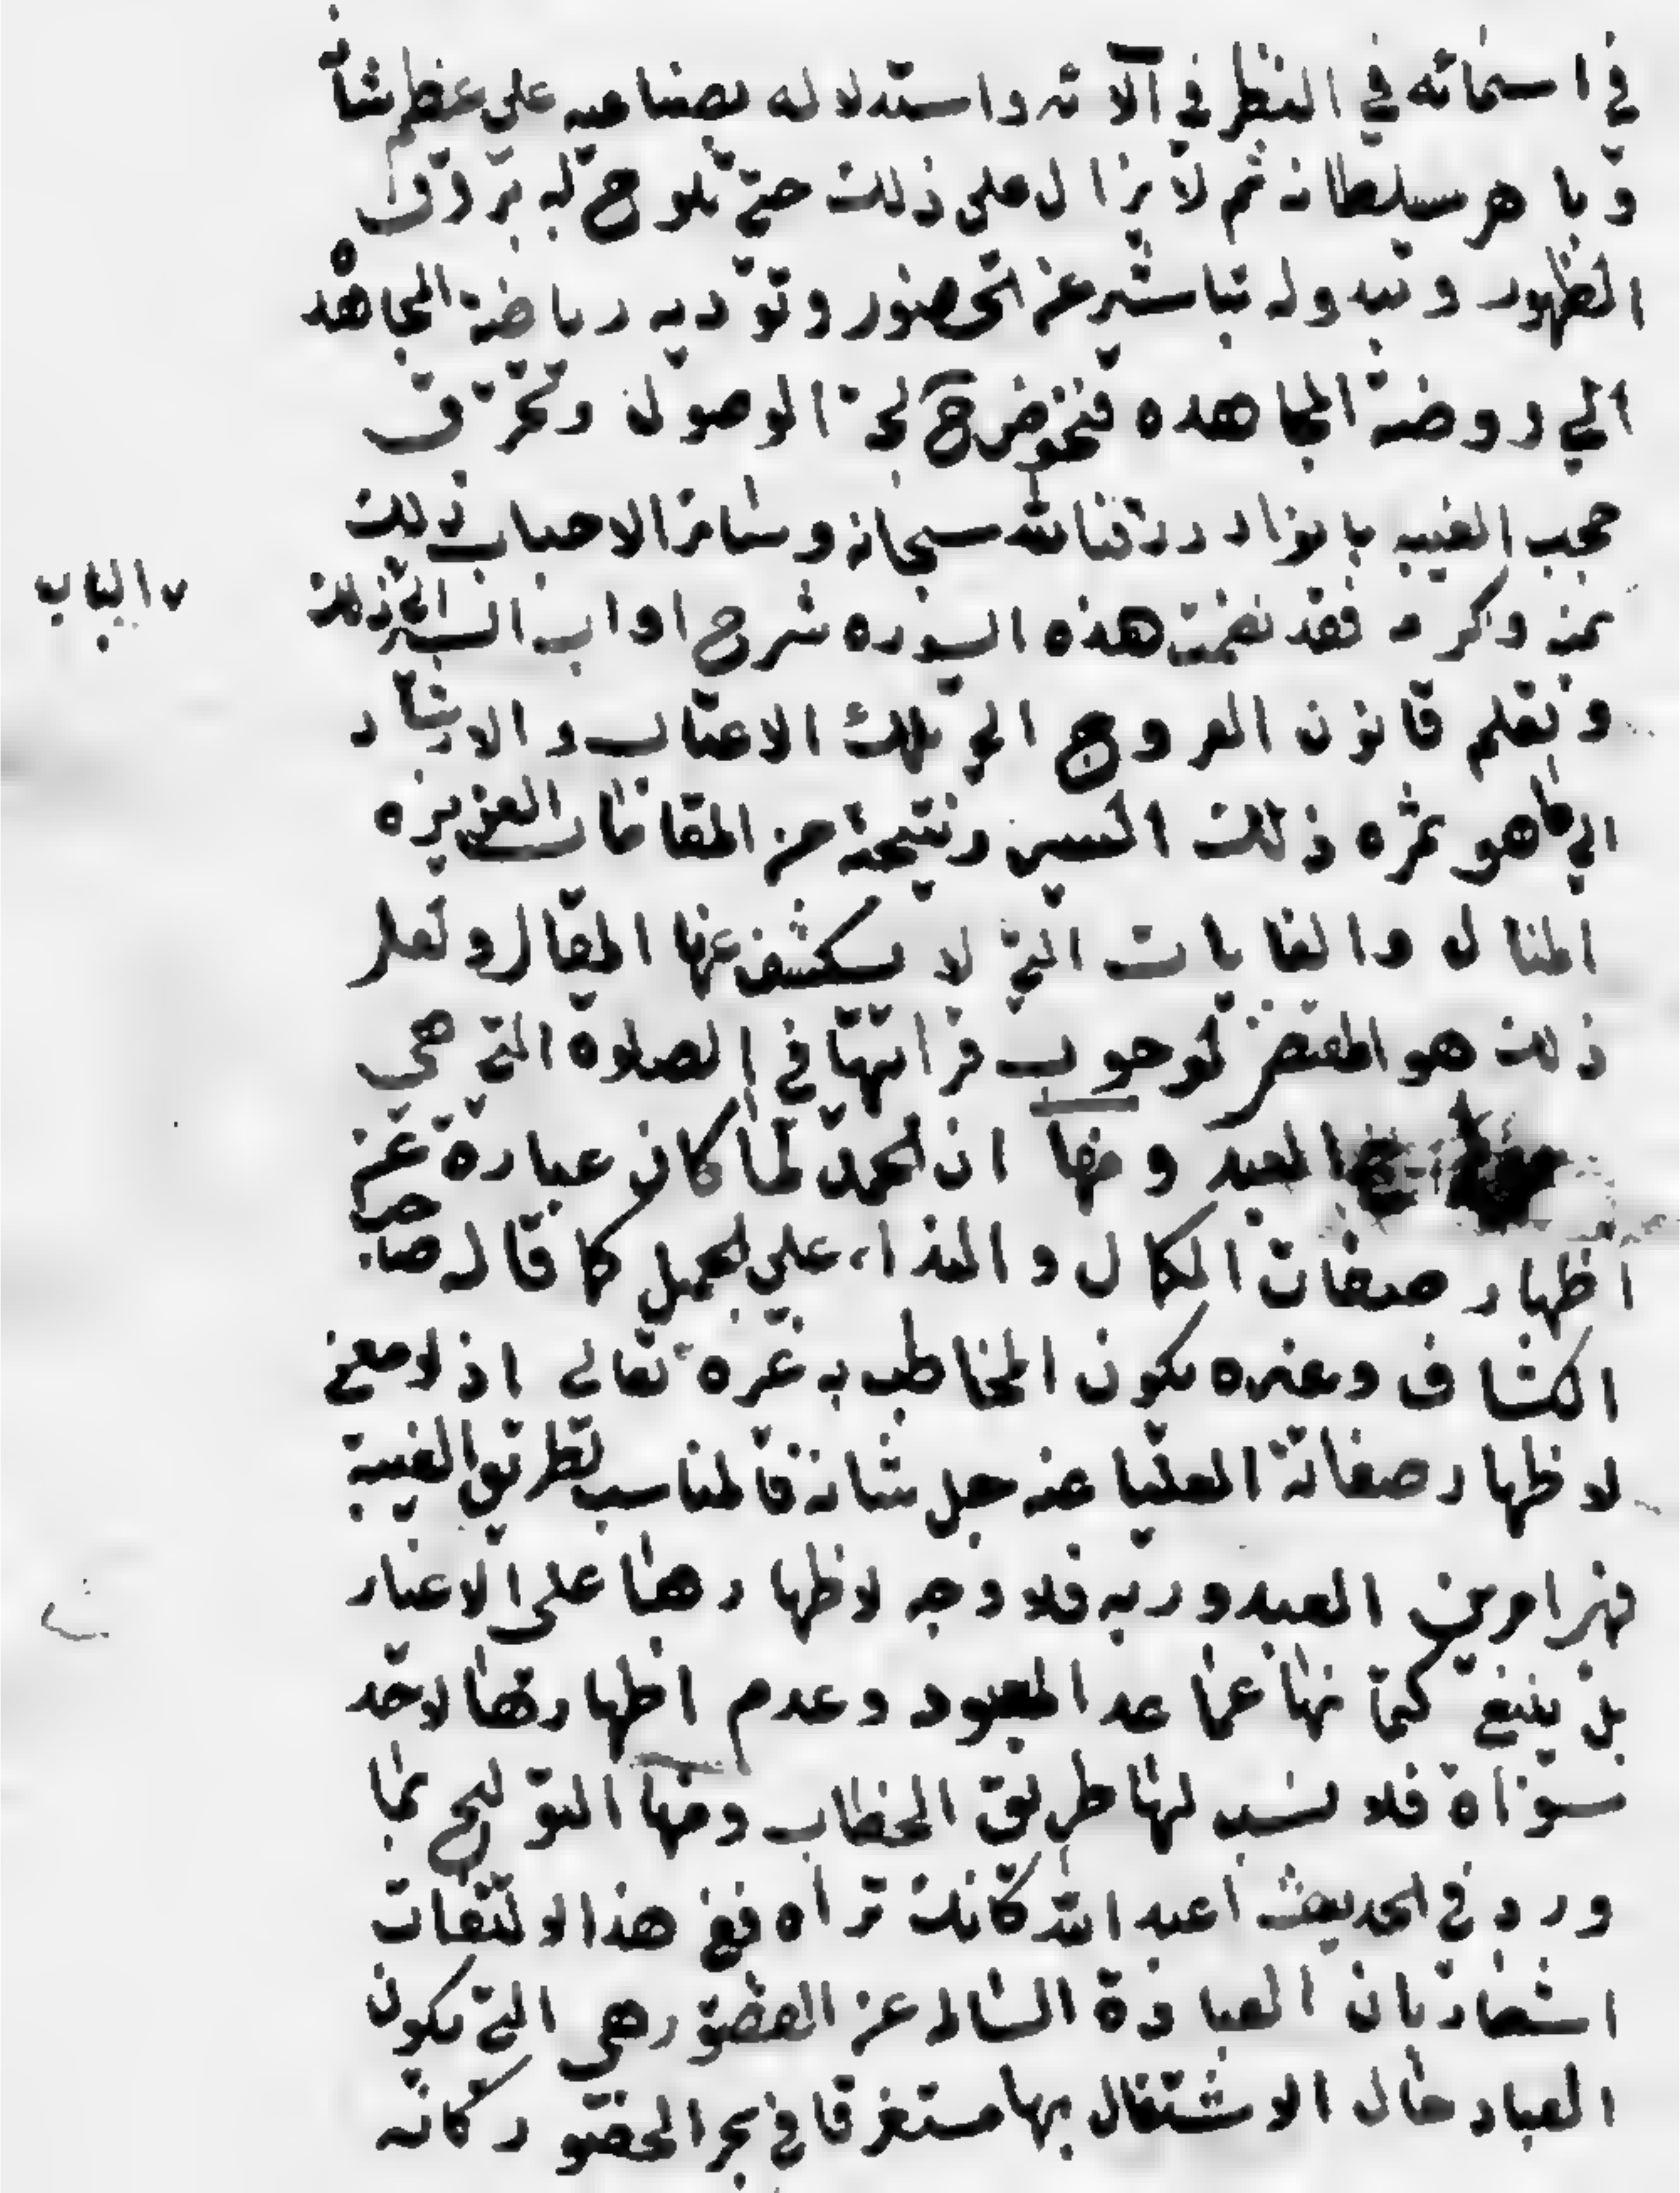 في اسمائه في النظر في آلائه واستدلاله بصنايعه علي عظم شأنه
وباهر سلطانه ثم لا يزال علي ذلك حتي تلوح له بروق
الظهور وتبدو له تباشير عن الحضور وتوديه رياضة المجاهده
الي روضة المجاهده فيخوض لجة الوصول وتخرق
حجب الغيبه بانوار رزقنا الله سبحانه وسائر الاحباب ذلك
بمنه وكرمه فقد تضمنت هذه السوره شرح اداب السير الي ذلك
الباب
وتعلم قانون العروج الي تلك الاعتاب والارشاد
الي ما هو ثمره ذلك السير ونتيجة من المقامات العزيزه
المنال والغايات التي لا يكشف عنها المقال ولعل
ذلك هو المقتضي لوجوب قرائتها في الصلاوة التي هي
العبد ومنها ان الحمد لما كان عبارة عن
اظهار صفات الكمال والنداء علي الجميل كما قاله صاحب
الكشاف وغيره يكون المخاطب به غيره تعالي اذ لا معني
لاظهار صفاته العليا عنه جل شانه فالمناسب بطريق الغيبة
فهي امر بين العبد وربه فلا وجه لاظهارها علي الاغيار
بل ينبغي كتمانها عما عدا المعبود وعدم اظهارها لاحد
سواه فلا نسب لها طريق الخطاب ومنها التلويح بما
ورد في الحديث اعبد الله كانك تراه ففي هذا الالتفات
اشعار بان العبادة السالم عن القصور هي التي يكون
العباد حال الاشتغال بها مستغرقا في بحر الحضور كانه